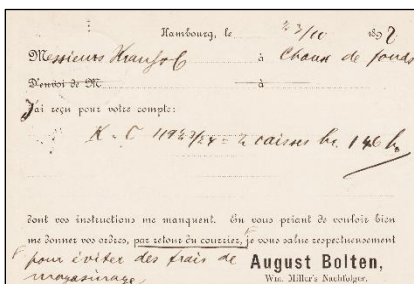 Hambourg, le 23/10 1892
Messieurs à Chaux de fonds
D'envoi de M à
J'ai reçu pour votre compte:
K = C 23/24 = 2 caisses 146 k.
dont vos instructions me manquent. En vous priant de vouloir bien
me donner vos ordres, par retour du courrier, je vous salue respectueusement
pour éviter des frais de
magasinage
August Bolten,
Wm. Miller's Nachfolger.